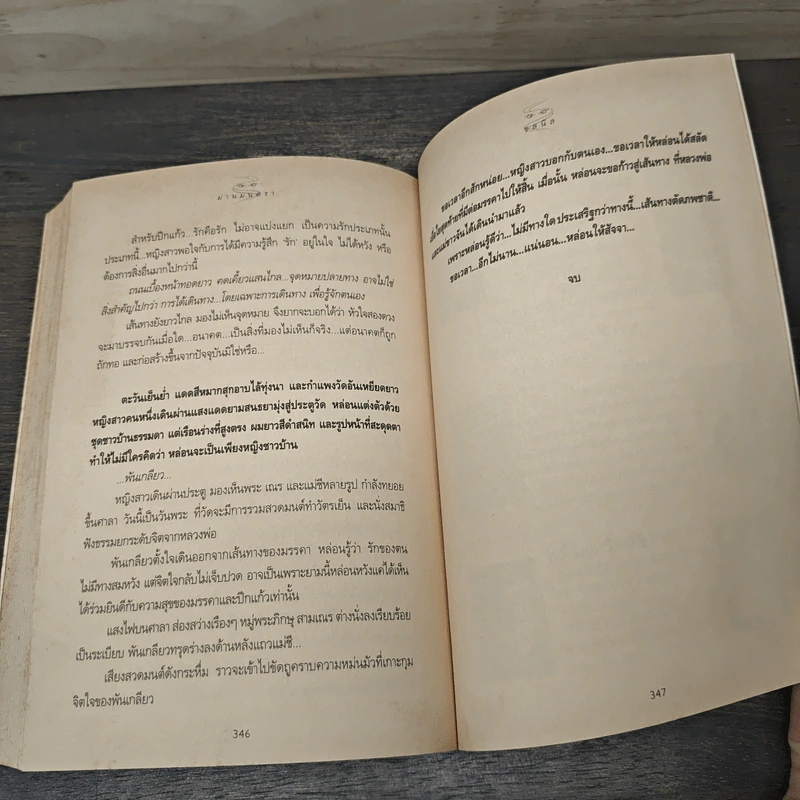 ม่านมนตรา
สำหรับปีกแก้ว...รักคือรัก ไม่อาจแบ่งแยก เป็นความรักประเภทนั้น
ประเภทนี้...หญิงสาวพอใจกับการได้มีความรู้สึก ‘รัก’ อยู่ในใจ ไม่ได้หวัง หรือ
ต้องการสิ่งอื่นมากไปกว่านี้
ถนนเบื้องหน้าทอดยาว คดเคี้ยวแสนไกล...จุดหมายปลายทาง อาจไม่ใช่
สิ่งสำคัญไปกว่า การได้เดินทาง...โดยเฉพาะการเดินทาง เพื่อรู้จักตนเอง
เส้นทางยังยาวไกล มองไม่เห็นจุดหมาย จึงยากจะบอกได้ว่า หัวใจสองดวง
จะมาบรรจบกันเมื่อใด...อนาคต...เป็นสิ่งที่มองไม่เห็นก็จริง...แต่อนาคตก็ถูก
ถักทอ และก่อสร้างขึ้นจากปัจจุบันมิใช่หรือ...
ตะวันเย็นย่ำ แดดสีหมากสุกอาบไล้ทุ่งนา และกำแพงวัดอันเหยียดยาว
หญิงสาวคนหนึ่งเดินผ่านแสงแดดยามสนธยามุ่งสู่ประตูวัด หล่อนแต่งตัวด้วย
ชุดชาวบ้านธรรมดา แต่เรือนร่างที่สูงตรง ผมยาวสีดำสนิท และรูปหน้าที่สะดุดตา
ทำให้ไม่มีใครคิดว่า หล่อนจะเป็นเพียงหญิงชาวบ้าน
...พันเกลียว...
หญิงสาวเดินผ่านประตู มองเห็นพระ เณร และแม่ชีหลายรูป กำลังทยอย
ขึ้นศาลา วันนี้เป็นวันพระ ที่วัดจะมีการรวมสวดมนต์ทำวัตรเย็น และนั่งสมาธิ
ฟังธรรมยกระดับจิตจากหลวงพ่อ
พันเกลียวตั้งใจเดินออกจากเส้นทางของมรรคา หล่อนรู้ว่า รักของตน
ไม่มีทางสมหวัง แต่จิตใจกลับไม่เจ็บปวด อาจเป็นเพราะยามนี้หล่อนหวังแค่ได้เห็น
ได้ร่วมยินดีกับความสุขของมรรคาและปีกแก้วเท่านั้น
แสงไฟบนศาลา ส่องสว่างเรืองๆ หมู่พระภิกษุ สามเณร ต่างนั่งลงเรียบร้อย
เป็นระเบียบ พันเกลียวทรุดร่างลงด้านหลังแถวแม่ชี...
เสียงสวดมนต์ดังกระหึ่ม ราวจะเข้าไปขัดถูคราบความหม่นมัวที่เกาะกุม
จิตใจของพันเกลียว
346
ชลนิล
ขอเวลาอีกสักหน่อย...หญิงสาวบอกกับตนเอง...ขอเวลาให้หล่อนได้สลัด
เยื่อใยสุดท้ายที่มีต่อมรรคาไปให้สิ้น เมื่อนั้น หล่อนจะขอก้าวสู่เส้นทาง ที่หลวงพ่อ
และแม่ชาวจันได้เดินนำมาแล้ว
เพราะหล่อนรู้ดีว่า...ไม่มีทางใด ประเสริฐกว่าทางนี้...เส้นทางตัดภพชาติ...
ขอเวลา...อีกไม่นาน...แน่นอน...หล่อนให้สัจจา...
จบ
347